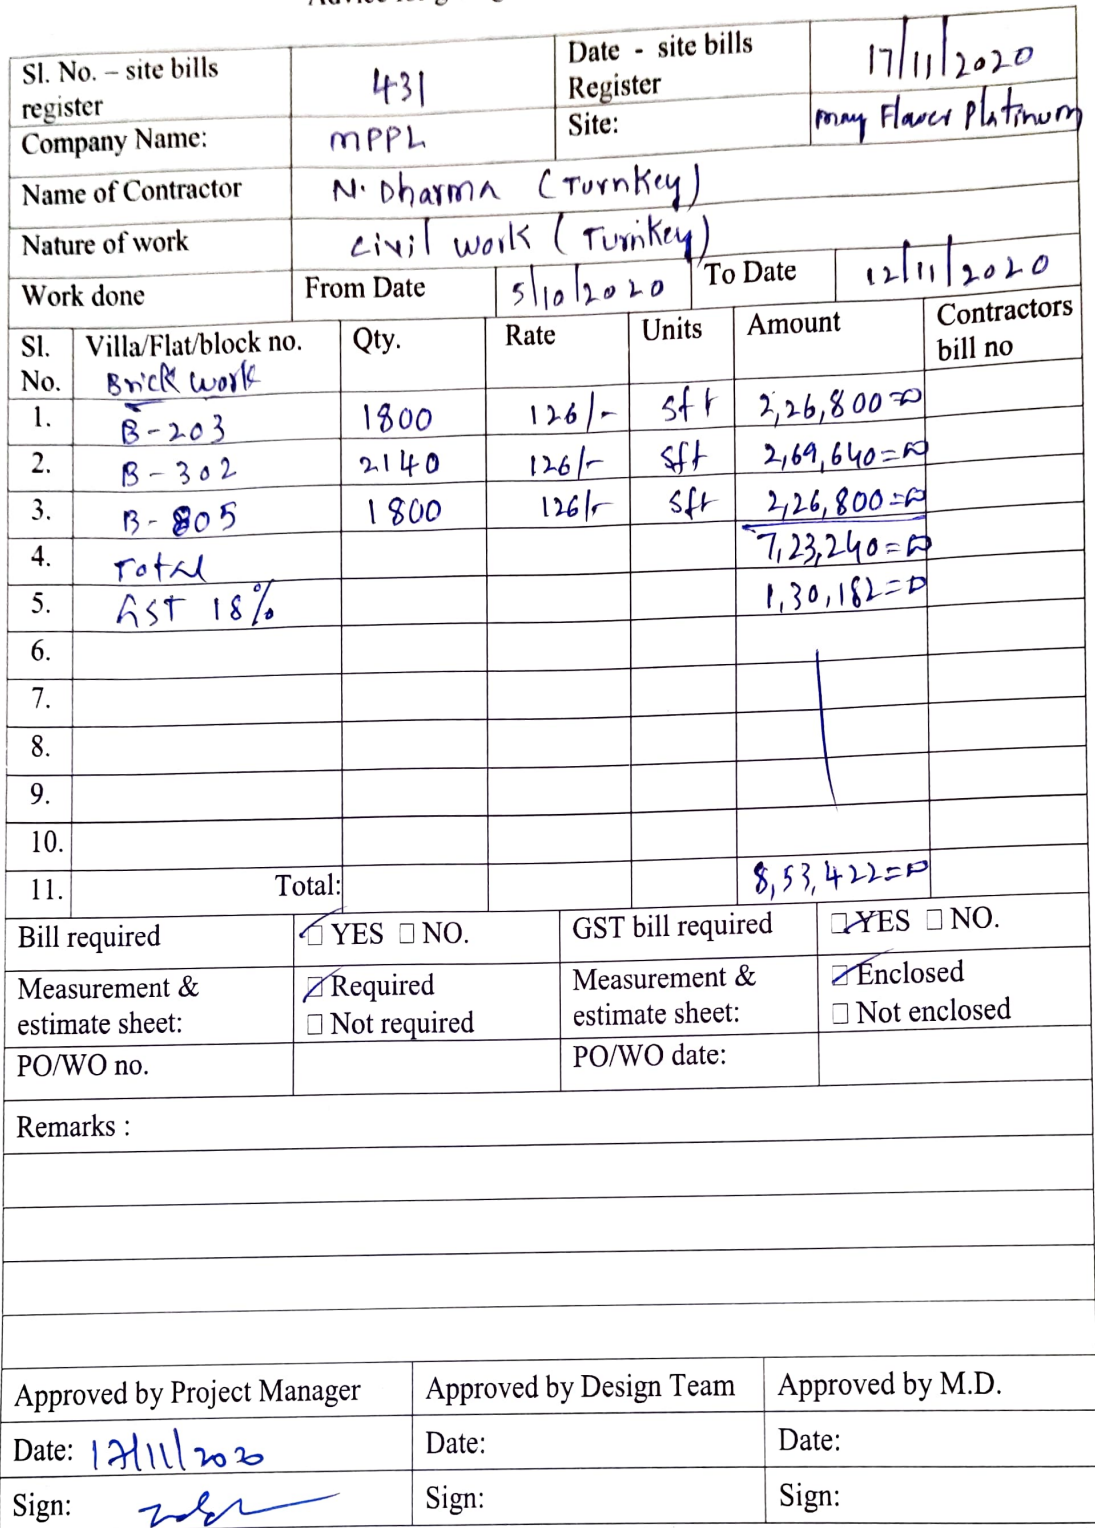 Sl. No. – site bills register 431 Date - site bills Register 17/11/2020
Company Name: MPPL Site: may Flower Platinum
Name of Contractor N. Dharma (Turnkey)
Nature of work civil work (Turnkey)
Work done From Date 5/10/2020 To Date 12/11/2020
Sl. No. Villa/Flat/block no. Qty. Rate Units Amount Contractors bill no
Brick work
1. B-203 1800 126/- sft 2,26,800=00
2. B-302 2140 126/- sft 2,69,640=00
3. B-805 1800 126/- sft 2,26,800=00
4. Total 7,23,240=00
5. GST 18% 1,30,182=00
6.
7.
8.
9.
10.
11. Total: 8,53,422=00
Bill required ☑ YES ☐ NO. GST bill required ☑ YES ☐ NO.
Measurement & estimate sheet: ☑ Required ☐ Not required Measurement & estimate sheet: ☑ Enclosed ☐ Not enclosed
PO/WO no. PO/WO date:
Remarks :
Approved by Project Manager Approved by Design Team Approved by M.D.
Date: 17/11/2020 Date: Date:
Sign: Sign: Sign: